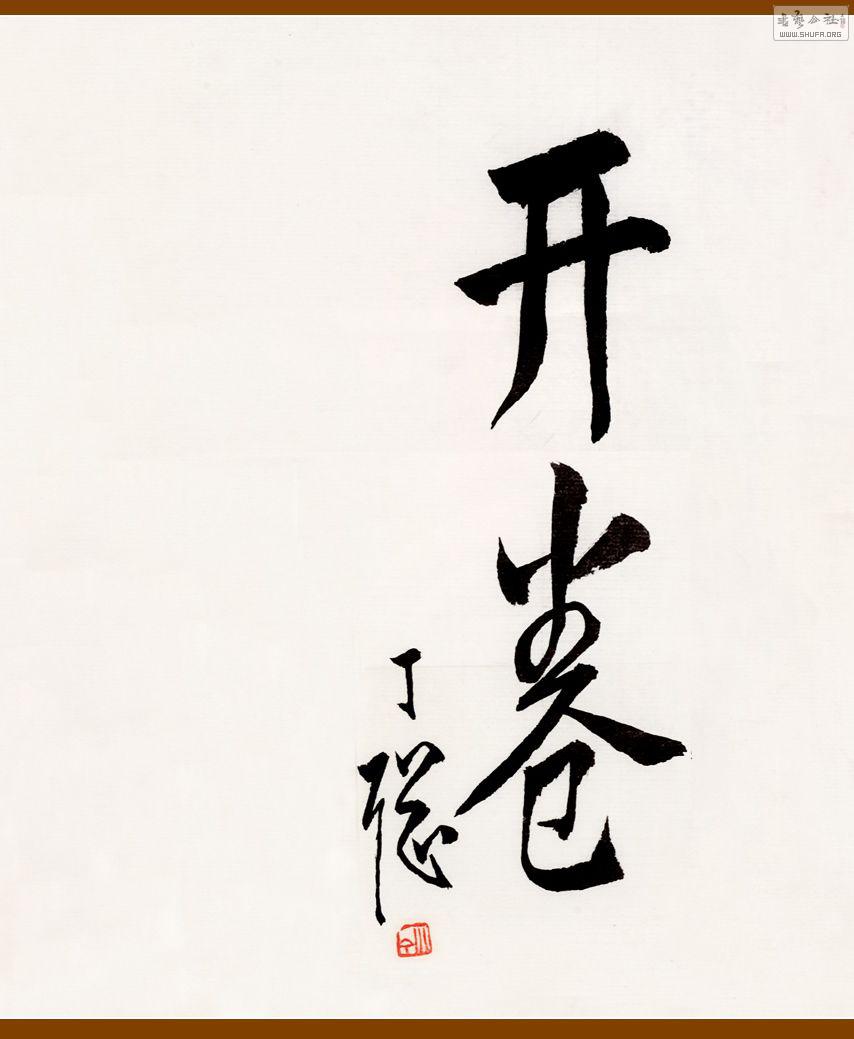 开卷
丁聪
书艺公社
WWW.SHUFA.ORG